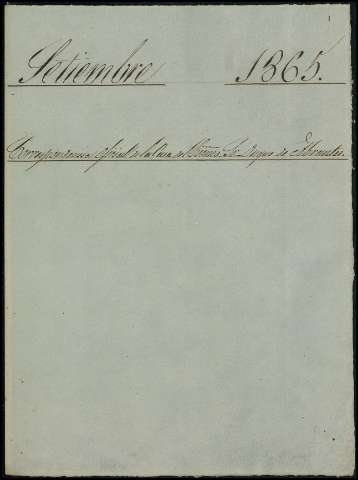 1
Setiembre 1865.
Correspondencia oficial de la Casa del Excmo. Sr. Duque de Abrantes.